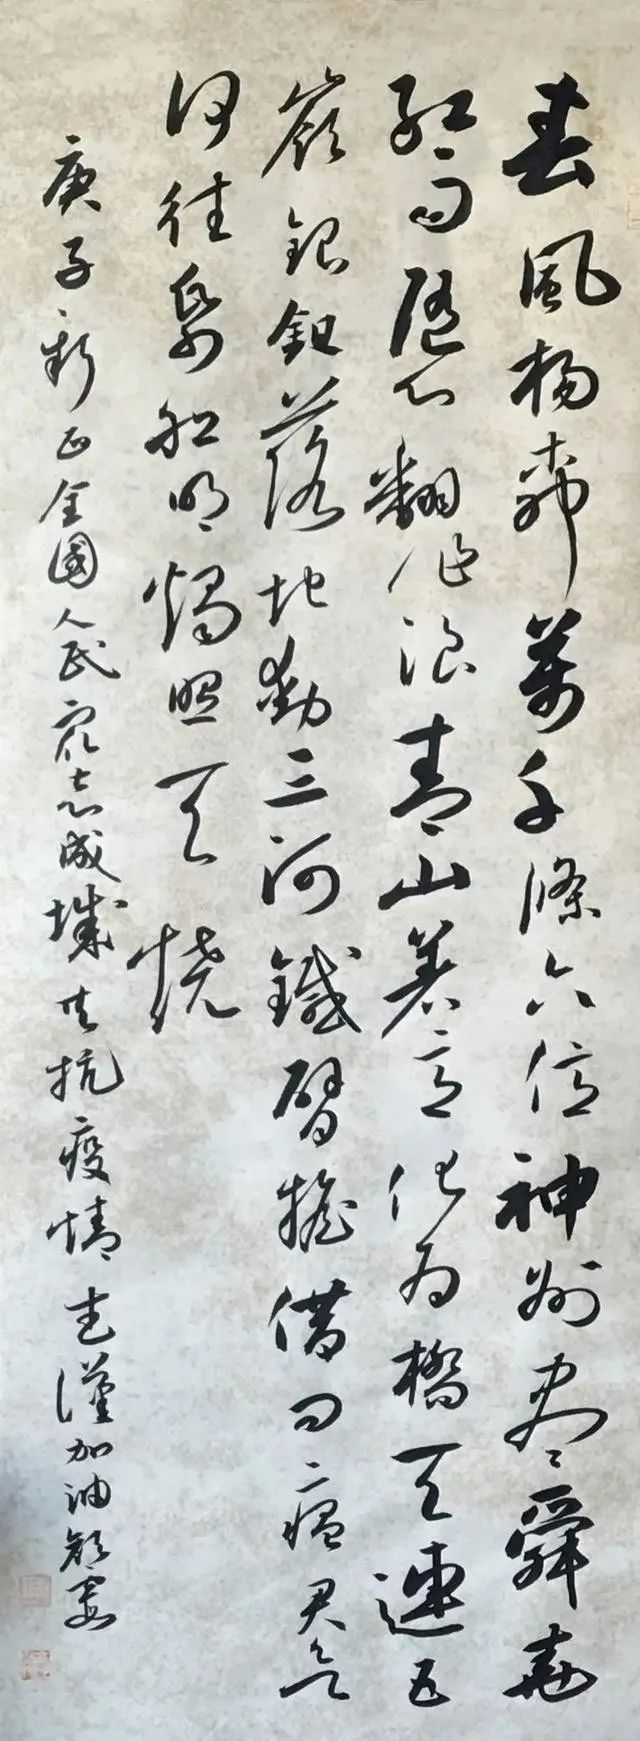 春風楊柳萬千條六億神州盡舜堯
紅雨隨心翻作浪青山著意化為橋天連五
嶺銀鋤落地動三河鐵臂搖借問瘟君欲
何往紙船明燭照天燒
庚子新正全國人民眾志成城共抗疫情武漢加油